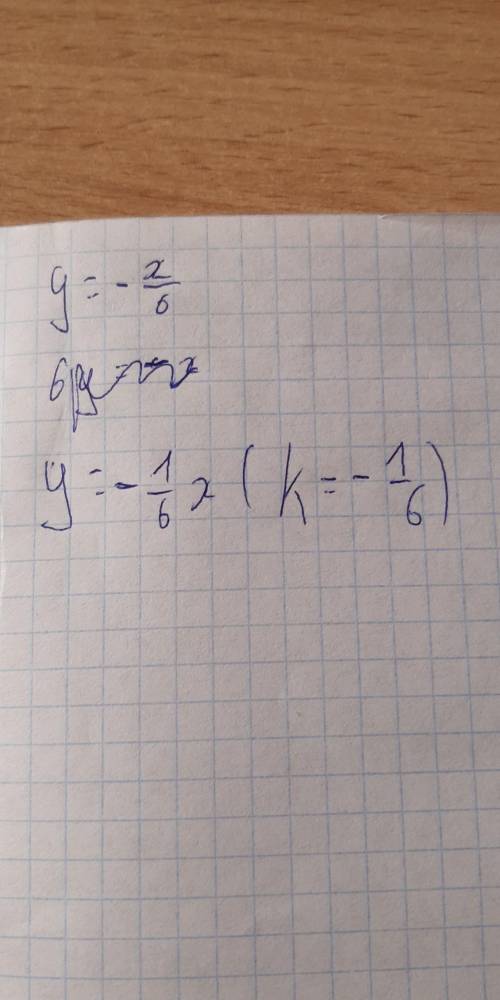 y = - x/6
6y
y = - 1/6 x ( k = - 1/6 )